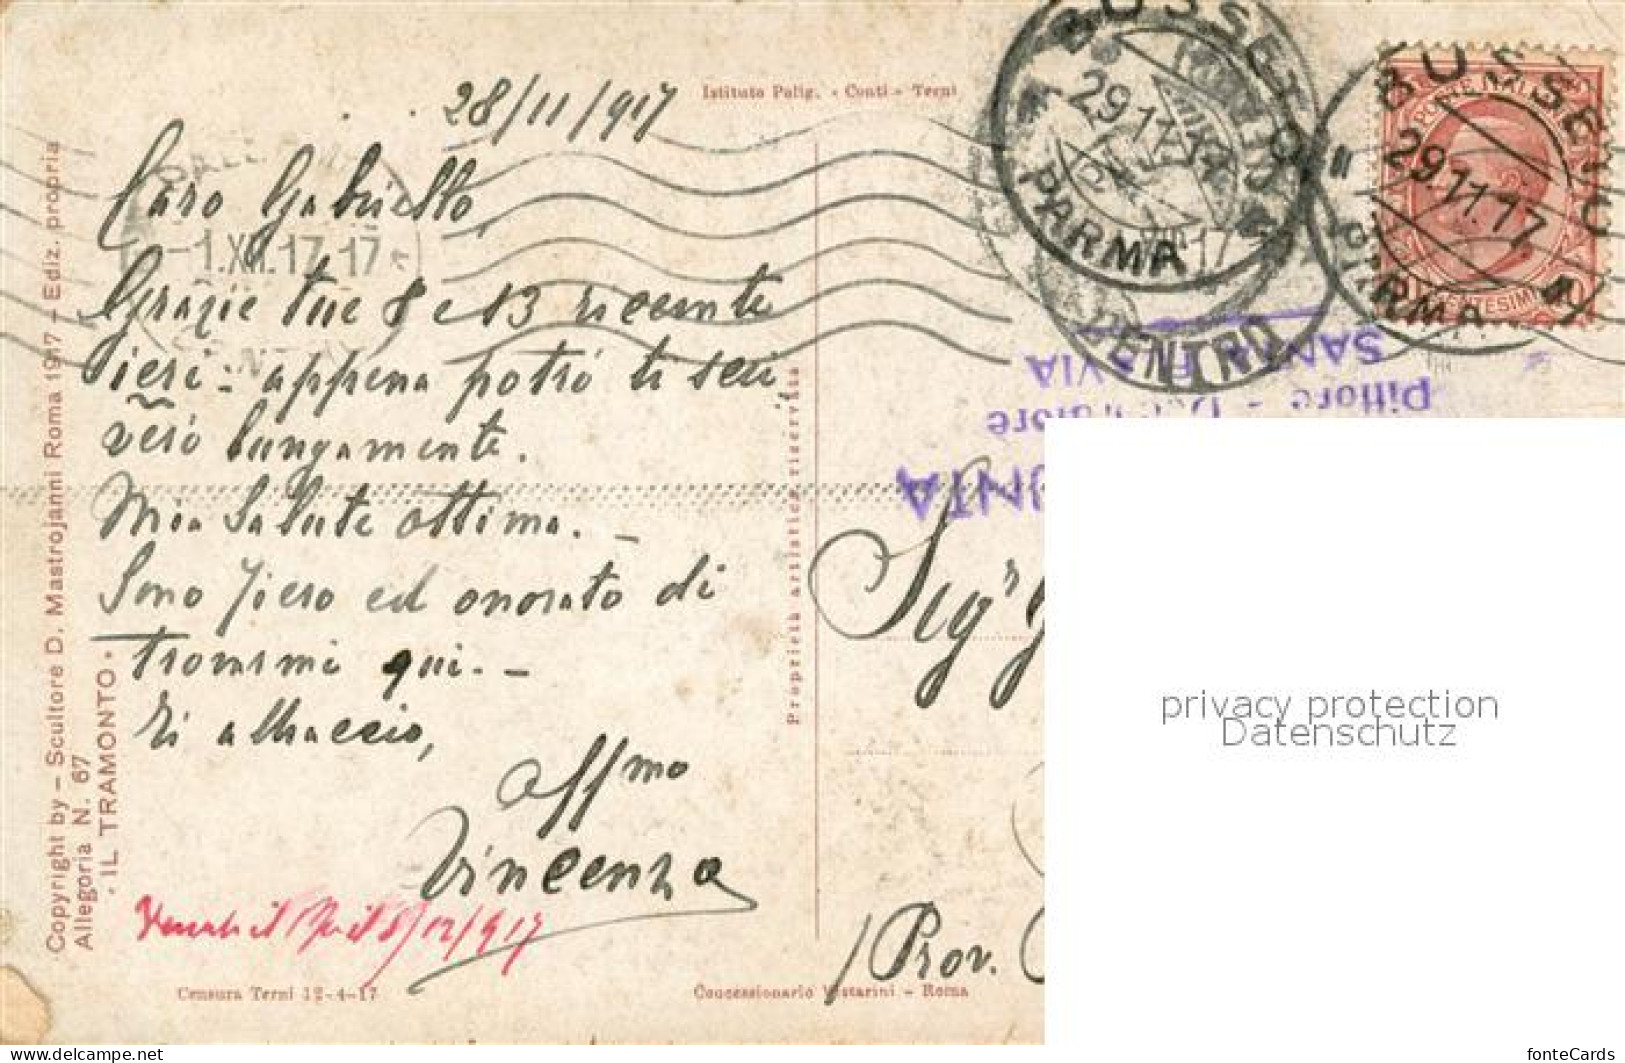 28/11/917
Istituto Polig. - Conti - Terni
Caro Gabriello,
Grazie tue 8 e 13 ricevute
ieri: appena potrò ti scri
verò lungamente.
Mia salute ottima. -
Sono fiero ed onorato di
trovarmi qui. -
Ti abbraccio,
affmo
Vincenzo
8/12/917
Censura Terni 12-4-17
Copyright by - Scultore D. Mastrojanni Roma 1917 - Ediz. propria
Allegoria N. 67
- IL TRAMONTO -
Proprietà artistica riservata
Concessionario Vettarini - Roma
1.XII.17.17
BUSSETO
29.11.17
PARMA
CENTRO
BUSSETO
29.11.17
PARMA
POSTE ITALIANE
CENTESIMI
SANTA FLAVIA
Pittore - Decoratore
Sigr
Prov.
privacy protection
Datenschutz
fonteCards
www.delcampe.net